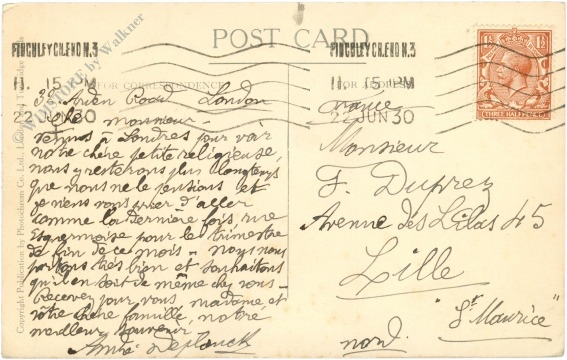 POST CARD
FINCHLEY CH. END N.3
11. 15 PM
22 JUN 30
FINCHLEY CH. END N.3
11. 15 PM
22 JUN 30
THREE HALFPENCE
FOR CORRESPONDENCE
FOR ADDRESS
Copyright Publication by Photochrom Co. Ltd., London and Tunbridge Wells
by Walkner
Road London
monsieur
venus à Londres pour voir
notre chère petite religieuse,
nous y resterons plus longtemps
que nous ne le pensions et
je viens vous prier d'aller
comme la dernière fois rue
Esquermoise pour le trimestre
de fin de ce mois - nous nous
portons très bien et souhaitons
qu'il en soit de même chez vous -
Recevez pour vous, madame et
votre chère famille, notre
meilleur souvenir
André Deplanck
France
Monsieur
F. Duprez
Avenue des Lilas 45
Lille
"St Maurice"
nord.